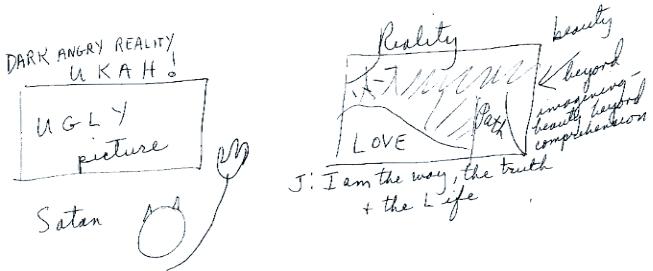 DARK ANGRY REALITY
UKAH!
UGLY
picture
Satan
Reality
LOVE
Path
beauty
beyond
imagining—
beauty beyond
comprehension
J: I am the way, the truth
+ the Life